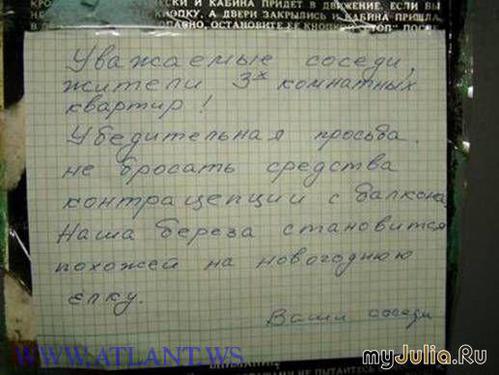 И КАБИНА ПРИДЕТ В ДВИЖЕНИЕ. ЕСЛИ ВЫ
КНОПКУ, А ДВЕРИ ЗАКРЫЛИСЬ И КАБИНА ПРИШЛА
ОСТАНОВИТЕ ЕЕ КНОПКОЙ "СТОП"
Уважаемые соседи,
жители 3х комнатных
квартир!
Убедительная просьба
не бросать средства
контрацепции с балкона
Наша береза становится
похожей на новогоднюю
ёлку.
Ваши соседи
WWW.ATLANT.WS
myJulia.Ru
НЕ ПЫТАЙТЕСЬ